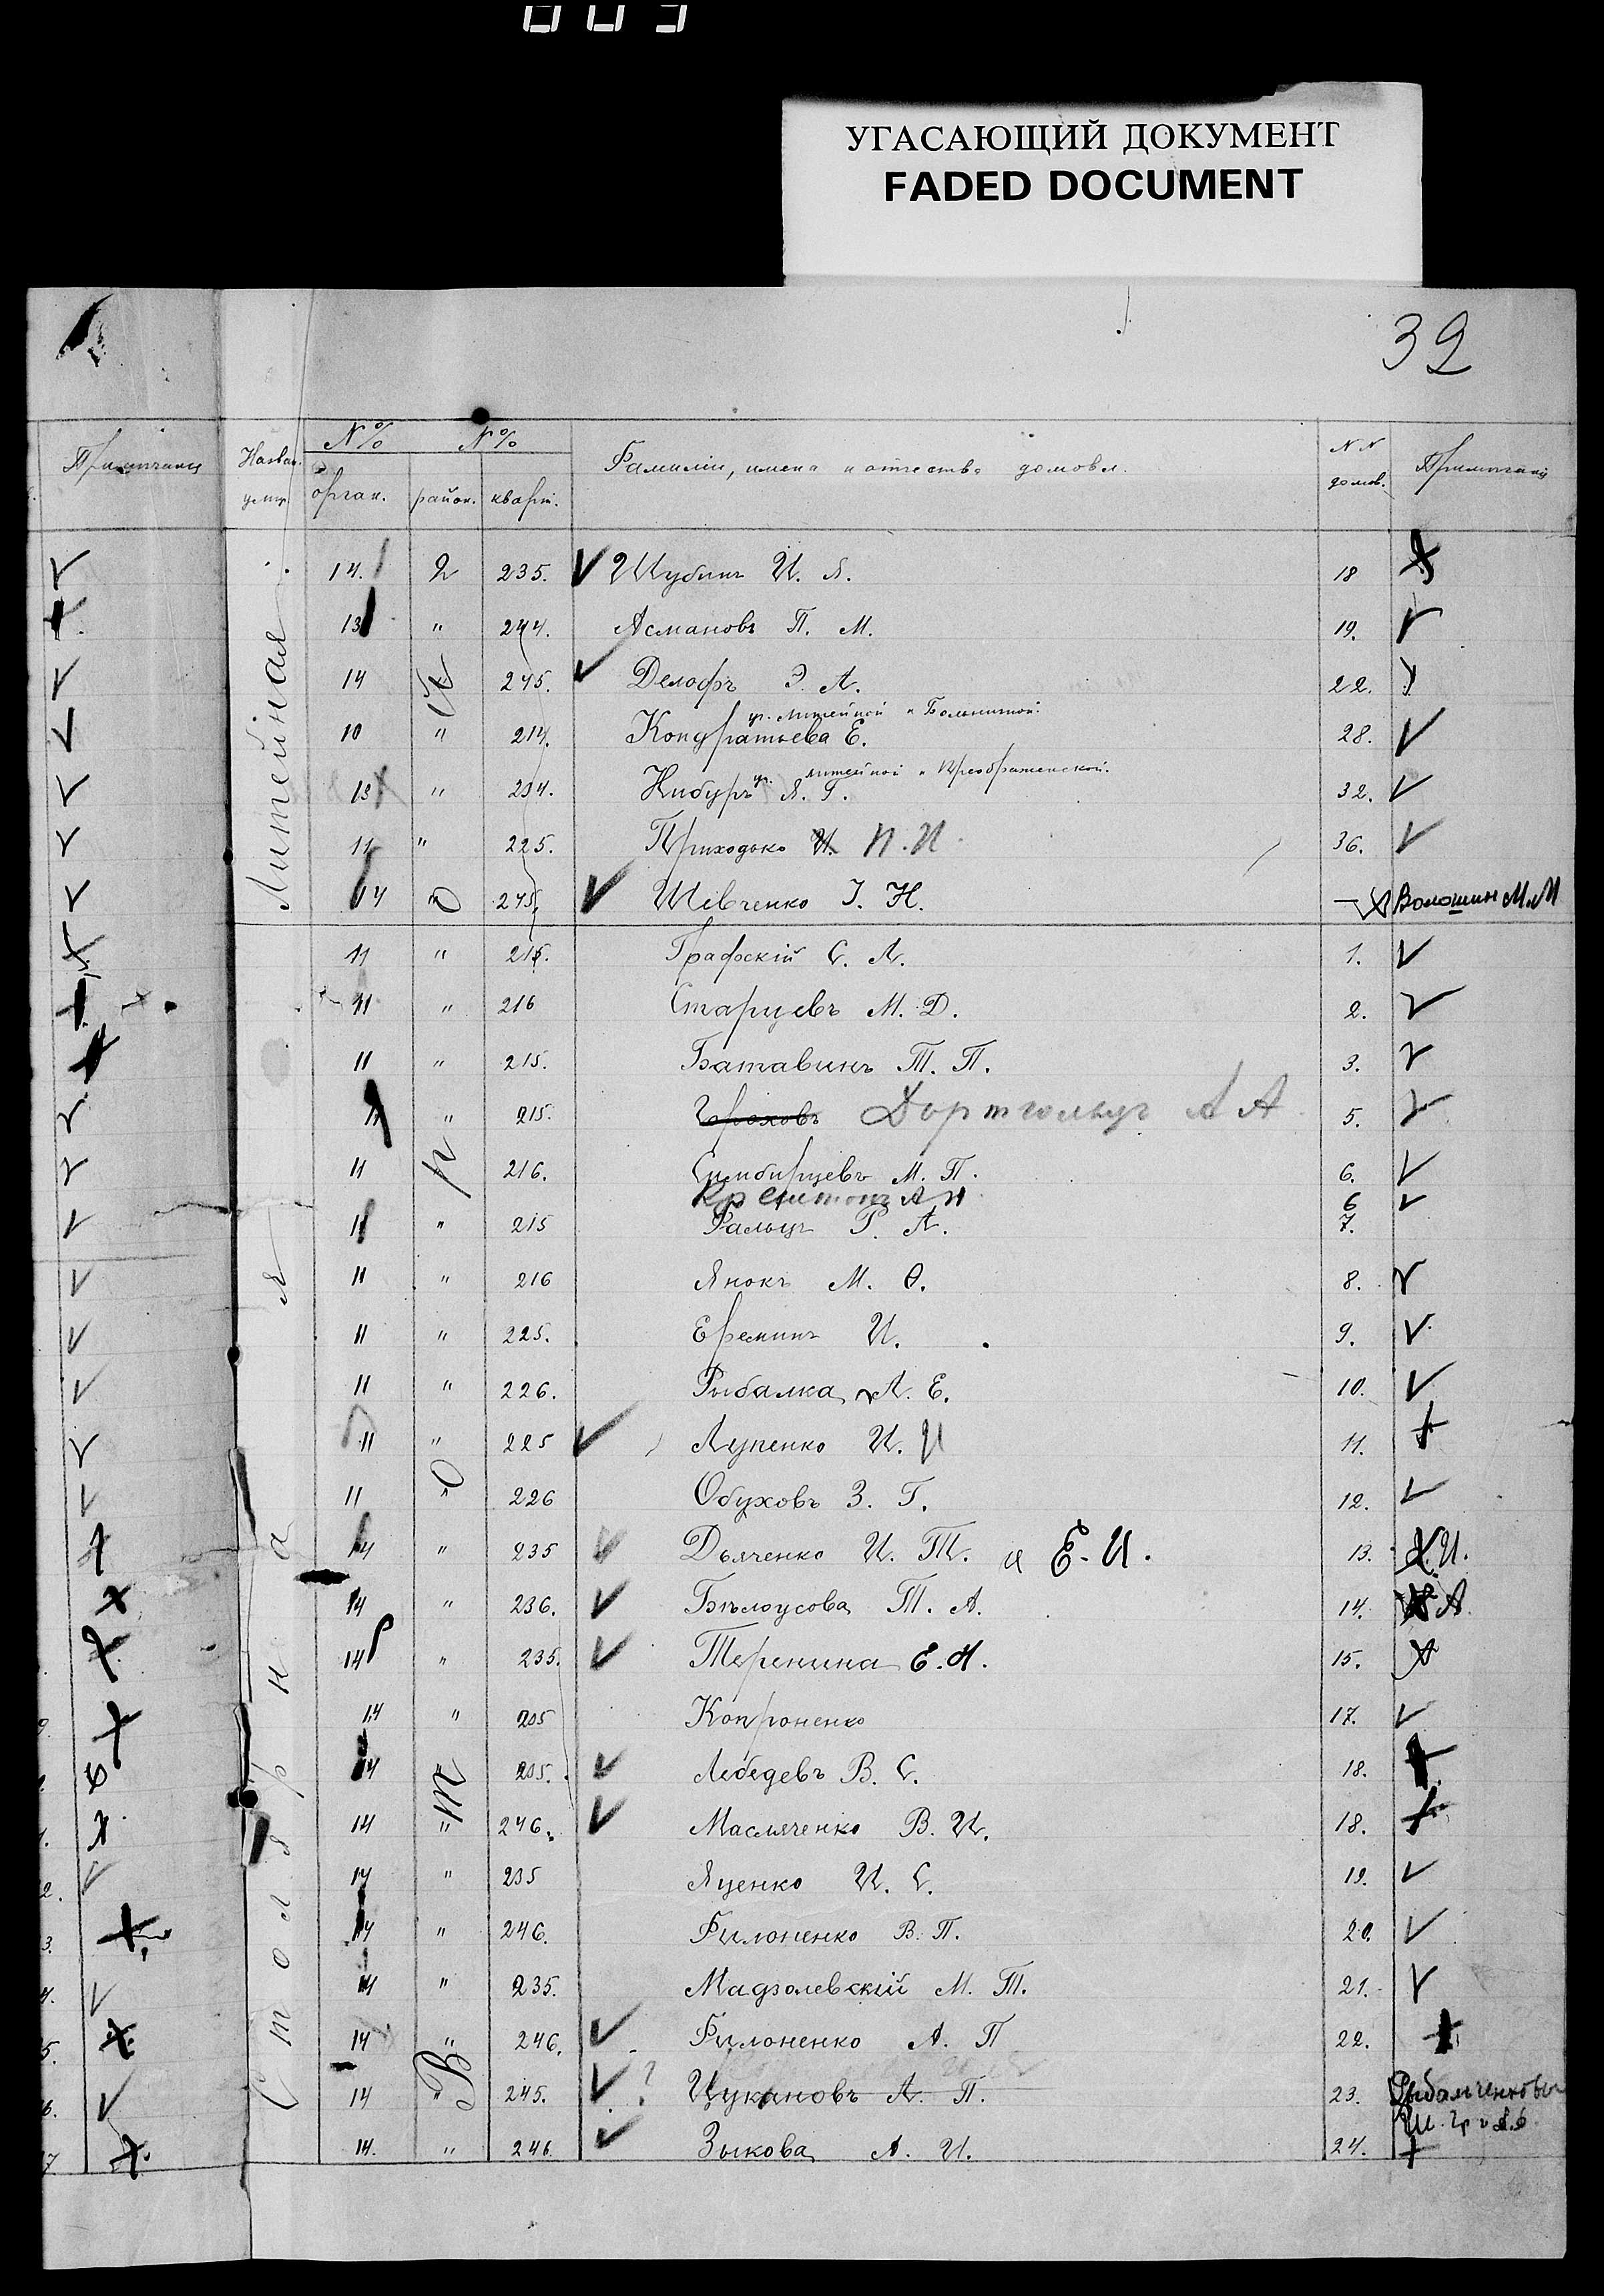 УГАСАЮЩИЙ ДОКУМЕНТ
FADED DOCUMENT
32
Примѣчанія
Назван. улиц.
№№ орган.
№№
район. кварт.
Фамиліи, имена и отчества домовл.
NN домов.
Примѣчанія
Литейная
14. 2 235. Шубинъ И. Я. 18
13 " 244. Асмановъ П. М. 19.
14 245. Делафъ Э. А. 22.
уг. Литейной и Больничной.
10 " 214. Кондратьева Е. 28.
уг. Литейной и Преображенской.
13 " 234. Нибуръ Я. Г. 32.
11 " 225. Приходько И. П. И. 36.
14 245. Шевченко І. Н. — Волошин М. М
Столярная
Второй
11 " 215. Графскій С. А. 1.
11 " 216 Старцевъ М. Д. 2.
11 " 215. Батавинъ Т. П. 3.
11 " 215. Гороховъ Дортгольцъ А А 5.
11 216. Симбирцевъ М. П. 6.
Крештопъ А Н 6
11 " 215 Фальцъ Г. А. 7.
11 " 216 Янокъ М. Ѳ. 8.
11 " 225. Ереминъ И. 9.
11 " 226. Рыбалка А. Е. 10.
11 " 225 Лупенко И. И 11.
11 " 226 Обуховъ З. Г. 12.
14 " 235 Дьяченко И. Т. и Е. И. 13. И.
14 " 236. Бѣлоусова Т. А. 14. А.
14 " 235. Теренина Е. И. 15.
14 " 235 Копроненко 17.
14 235. Лебедевъ В. С. 18.
14 " 246. Масляченко В. И. 18.
14 " 235 Яценко И. С. 19.
14 " 246. Филоненко В. П. 20.
14 " 235. Мадзолевскій М. Т. 21.
14 " 246. Филоненко А. П 22.
14 " 245. ? Цукановъ А. П. 23. Рыбальченковы
14. " 246. Зыкова А. И. 24.